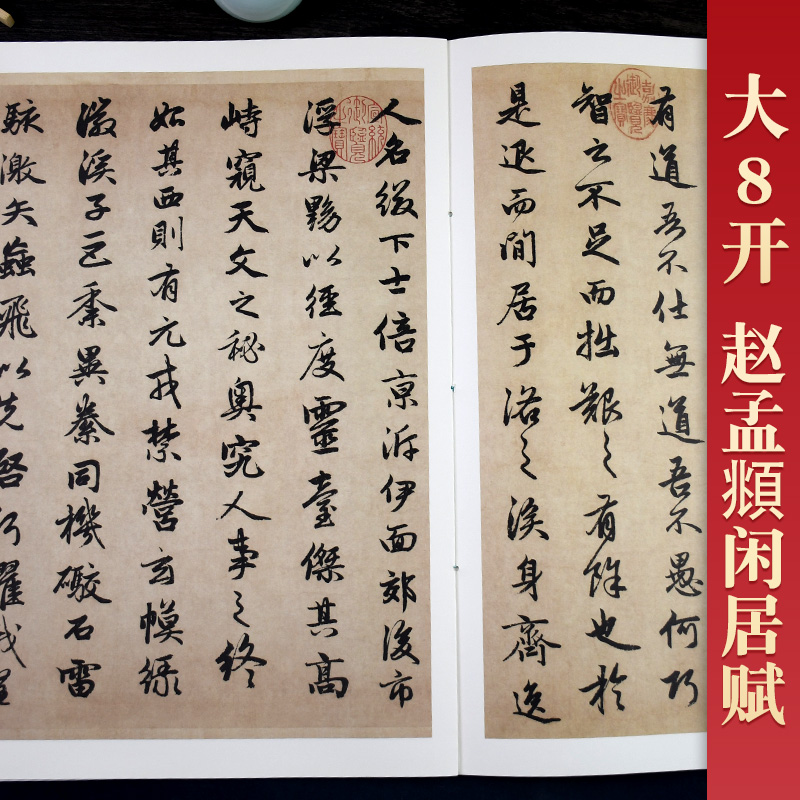 大8开 赵孟頫闲居赋
有道吾不仕無道吾不愚何巧
智之不足而拙艱之有餘也於
是退而閒居于洛之涘身齊逸
人名綴下士倍京泝伊面郊後市
浮梁黝以徑度靈臺傑其高
峙窺天文之秘奧究人事之終
始其西則有元戎禁營玄幙綠
徽溪子巨黍異絭同機礮石雷
駭激矢蝱飛以先啓行耀我皇
嘉慶御覽之寶
宣統御覽之寶